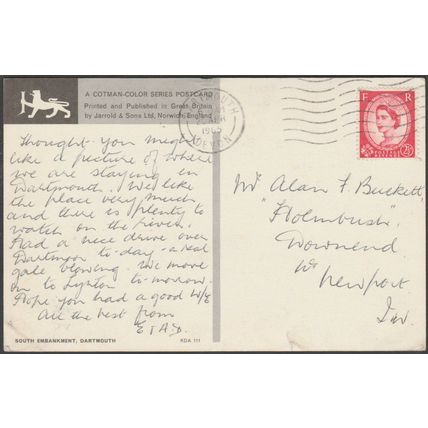 A COTMAN-COLOR SERIES POSTCARD
Printed and Published in Great Britain
by Jarrold & Sons Ltd, Norwich, England
Thought you might
like a picture of where
we are staying in
Dartmouth. We like
the place very much
and there is plenty to
watch on the river.
Had a nice drive over
Dartmoor to-day - a real
gale blowing. We move
on to Lynton to-morrow.
Hope you had a good W/E
All the best from
SOUTH EMBANKMENT, DARTMOUTH
KDA 111
DARTMOUTH
1965
DEVON
E R
2½
Mr Alan F Buckett,
"Holmbush",
Downend,
Nr Newport
I.W.